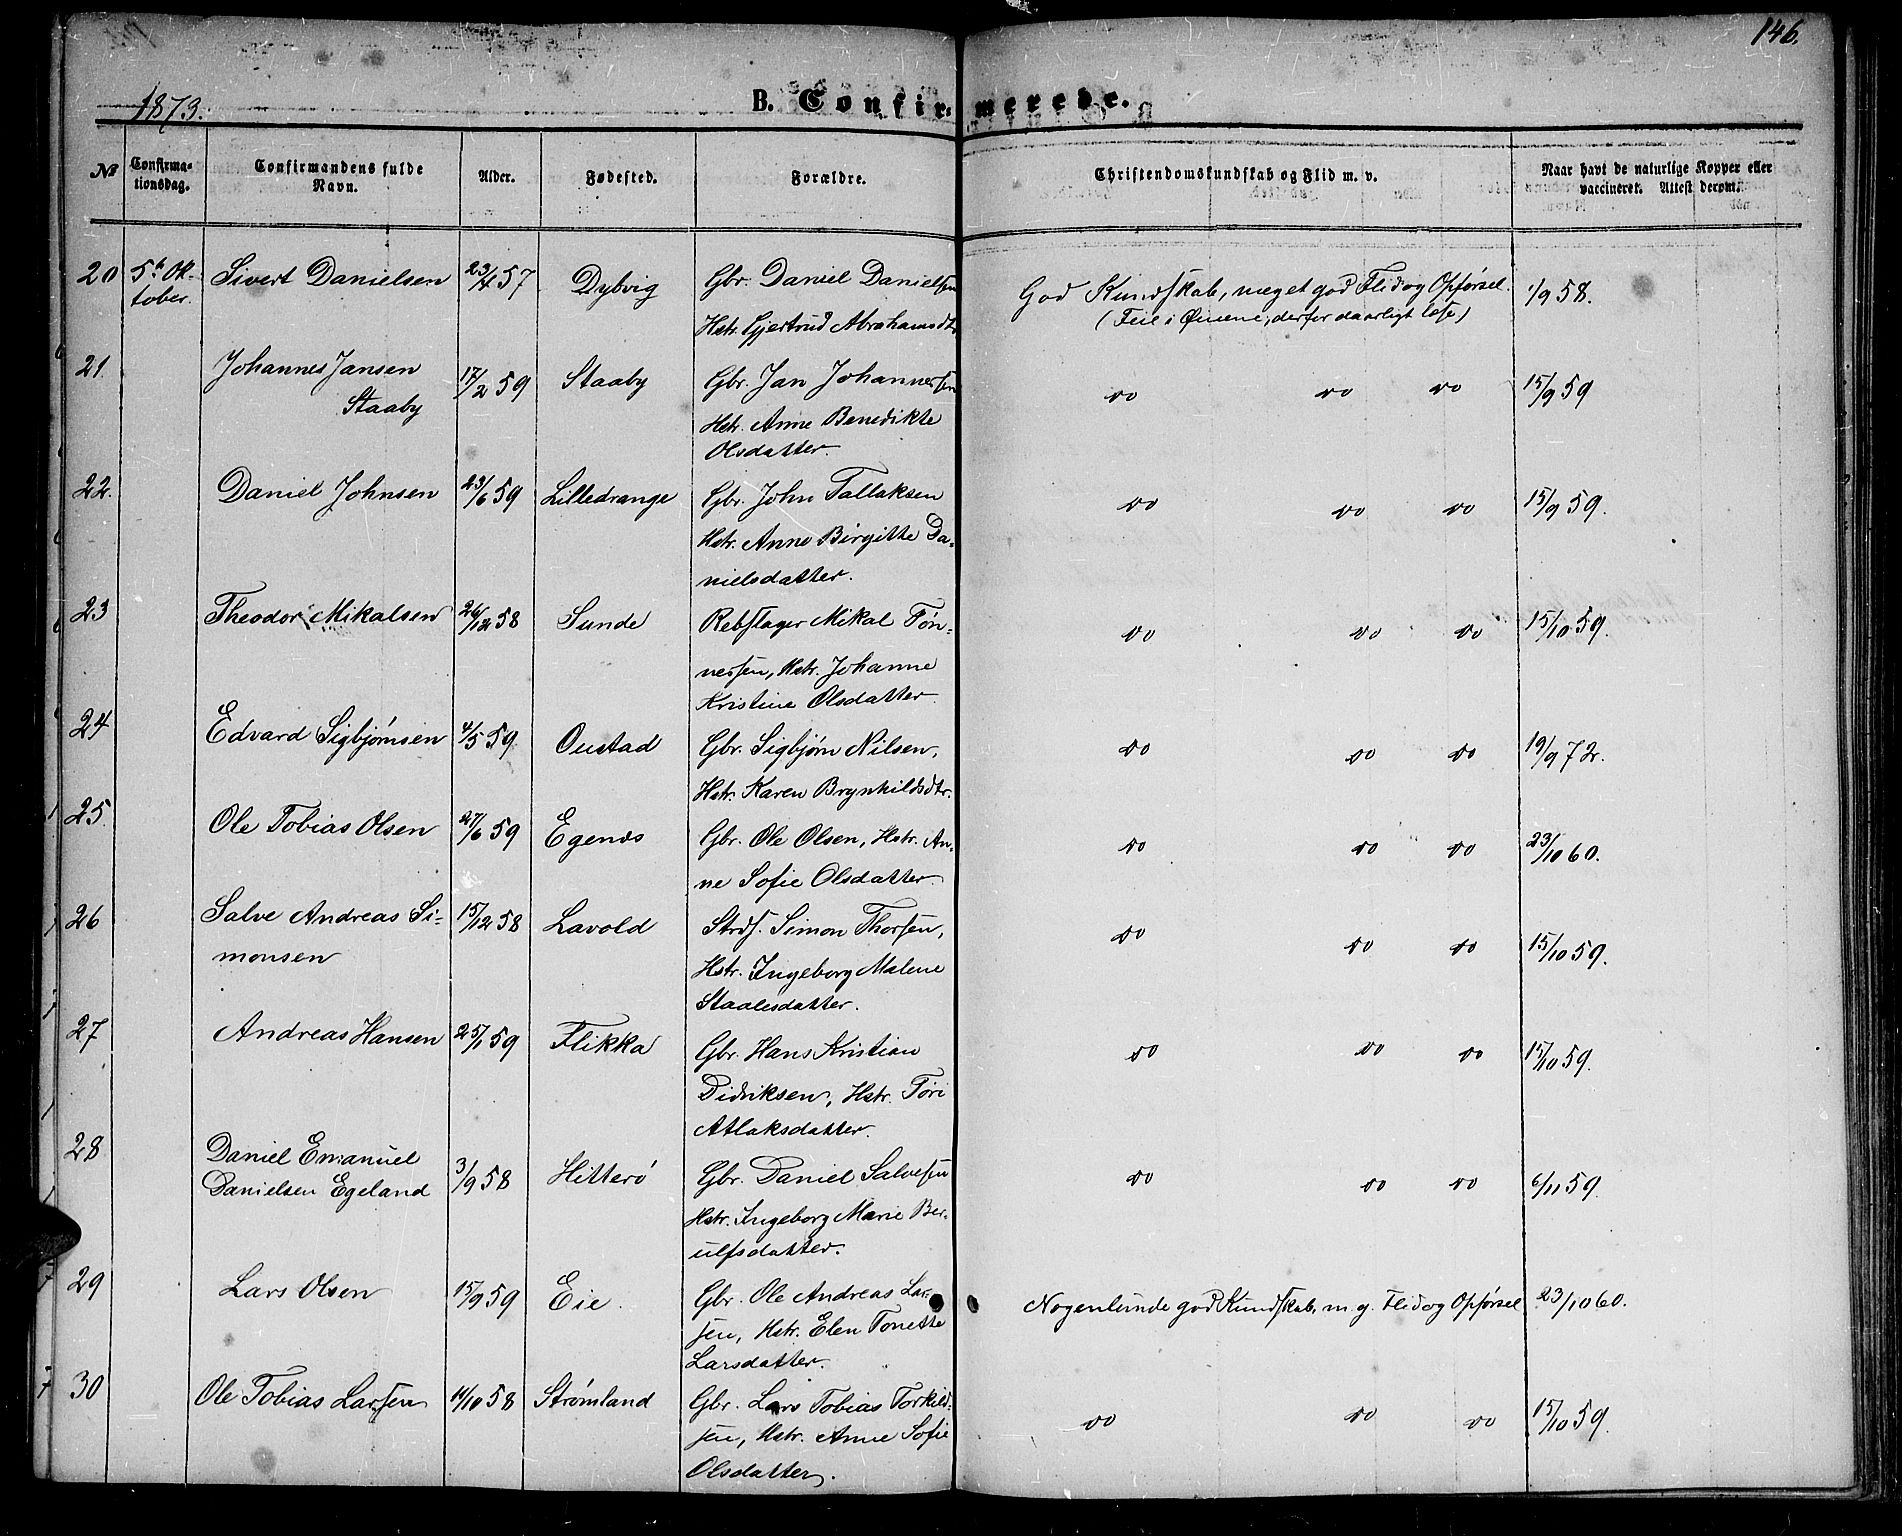 146.
1873.
B. Confirmerede.
№
Confirma-
tionsdag.
Confirmandens fulde
Navn.
Alder.
Fødested.
Forældre.
Christendomskundskab og Flid m. v.
Naar havt de naturlige Kopper eller
vaccineret. Attest derom.
20 5te Ok- Sivert Danielsen 23/4 57 Dybvig Gbr. Daniel Danielsen God Kundskab, meget god Flid og Opførsel. 1/9 58.
tober. Hstr. Gjertrud Abrahamsdtr. (Feil i Øinene, derfor daarligt læse)
21. Johannes Jansen 17/2 59 Staaby Gbr. Jan Johannesen do do do 15/9 59
Staaby Hstr. Anne Benedikte
Olsdatter.
22. Daniel Johnsen 23/6 59 Lilledrange Gbr. John Tallaksen do do do 15/9 59.
Hstr. Anne Birgitte Da-
nielsdatter.
23 Theodor Mikalsen 26/12 58 Sunde Rebslager Mikal Tøn- do do do 15/10 59.
nesen, Hstr. Johanne
Kristine Olsdatter.
24 Edvard Sigbjørnsen 4/5 59 Oustad Gbr. Sigbjørn Nilsen, do do do 19/9 72.
Hstr. Karen Brynhildsdtr.
25. Ole Tobias Olsen 27/6 59 Egenæs Gbr. Ole Olsen, Hstr. An- do do do 23/10 60.
ne Sofie Olsdatter.
26 Salve Andreas Si- 15/12 58 Lavold Strds. Simon Thorsen, do do do 15/10 59.
monsen Hstr. Ingeborg Malene
Staalesdatter.
27 Andreas Hansen 25/1 59 Flikka Gbr. Hans Kristian do do do 15/10 59.
Didriksen, Hstr. Tøri
Atlaksdatter.
28 Daniel Emanuel
Danielsen Egeland 3/9 58 Hitterø Gbr. Daniel Salvesen do do do 6/11 59.
Hstr. Ingeborg Marie Ber-
ulfsdatter.
29 Lars Olsen 15/9 59 Eie. Gbr. Ole Andreas Lar- Nogenlunde god Kundskab, m. g. Flid og Opførsel 23/10 60.
sen, Hstr. Elen Tonette
Larsdatter.
30 Ole Tobias Larsen 14/10 58 Strømland Gbr. Lars Tobias Torkild- do do do 15/10 59.
sen, Hstr. Anne Sofie
Olsdatter.